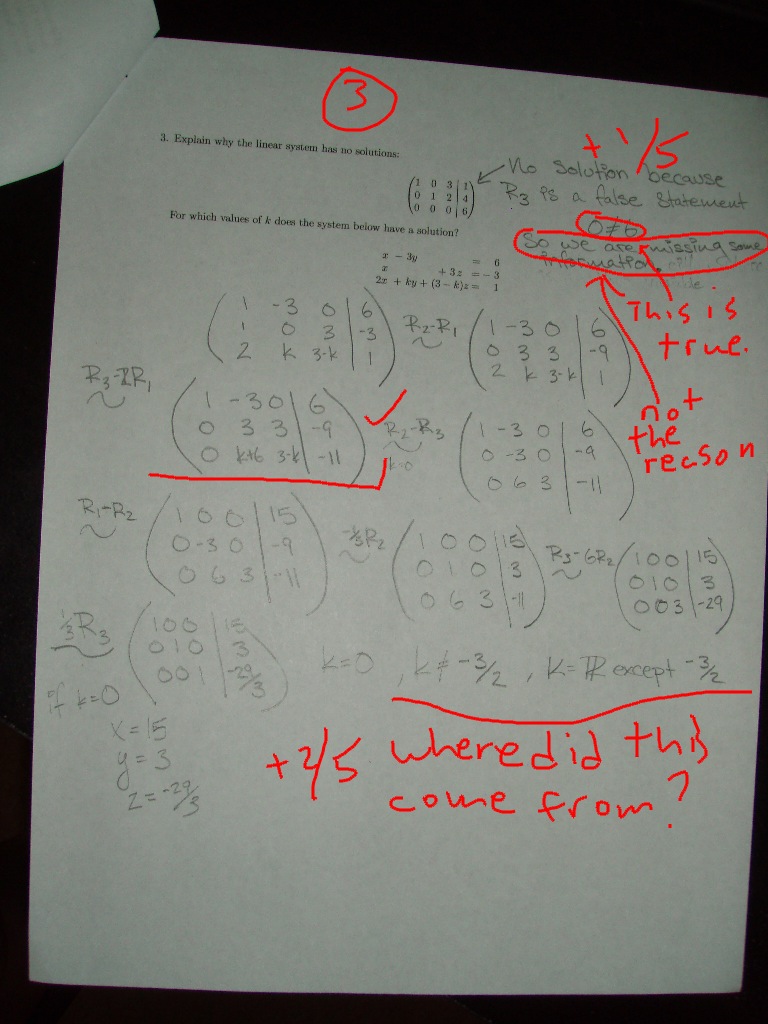 3
3. Explain why the linear system has no solutions:
+1/5
No solution because
R3 is a false statement
0≠6
So we are missing some
information
1 0 3 | 1
0 1 2 | 4
0 0 0 | 6
This is
true.
not
the
reason
For which values of k does the system below have a solution?
x − 3y = 6
x + 3z = −3
2x + ky + (3 − k)z = 1
1 -3 0 | 6
1 0 3 | -3
2 k 3-k | 1
R2-R1
1 -3 0 | 6
0 3 3 | -9
2 k 3-k | 1
R3-2R1
1 -3 0 | 6
0 3 3 | -9
0 k+6 3-k | -11
R2-R3
k=0
1 -3 0 | 6
0 -3 0 | -9
0 6 3 | -11
R1-R2
1 0 0 | 15
0 -3 0 | -9
0 6 3 | -11
-1/3R2
1 0 0 | 15
0 1 0 | 3
0 6 3 | -11
R3-6R2
1 0 0 | 15
0 1 0 | 3
0 0 3 | -29
1/3R3
1 0 0 | 15
0 1 0 | 3
0 0 1 | -29/3
k=0 , k≠-3/2 , K=ℝ except -3/2
if k=0
x=15
y=3
z=-29/3
+2/5 where did this
come from?